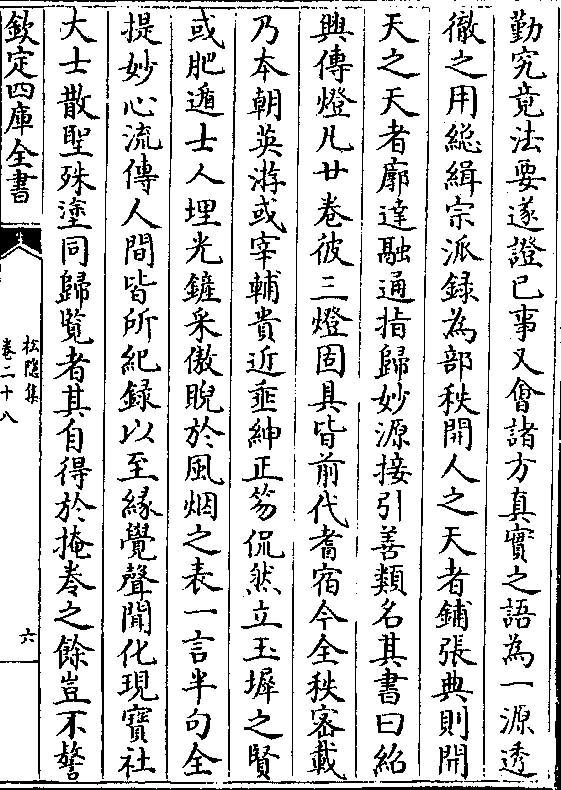 勤究竟法要遂證已事又會諸方真實之語為一源透
徹之用總緝宗派録為部秩開人之天者鋪張典則開
天之天者廓達融通指歸妙源接引善類名其書曰紹
興傳燈凡廿卷彼三燈固具皆前代耆宿今全秩宻載
乃本朝英游或宰輔貴近垂紳正笏侃然立玉墀之賢
或肥遁士人埋光鏟采傲睨於風烟之表一言半句全
提妙心流傳人間皆所紀録以至緣覺聲聞化現寳社
大士散聖殊塗同歸覧者其自得於掩卷之餘豈不瞥
欽定四庫全書
松隠集
卷二十八
六